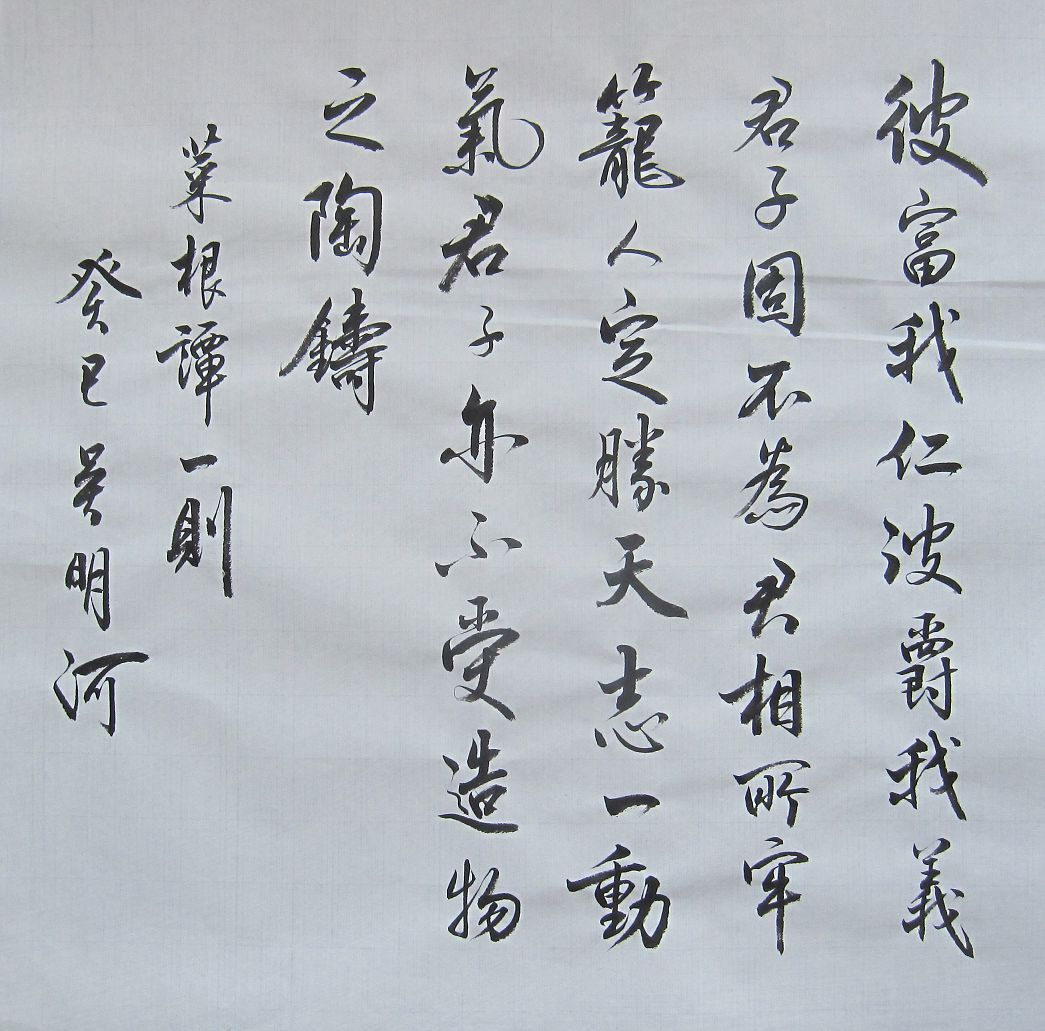 彼富我仁彼爵我義
君子固不為君相所牢
籠人定勝天志一動
氣君子亦不受造物
之陶鑄
菜根譚一則
癸巳吳明河